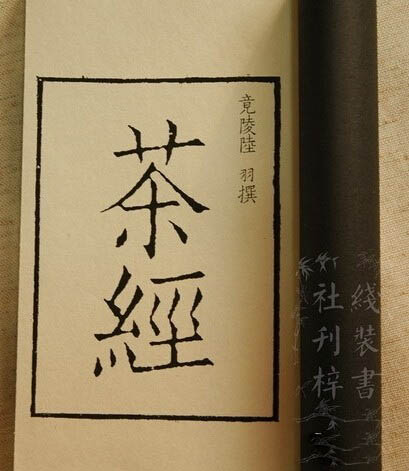 竟陵陸 羽撰
茶經
綫裝書
社刊梓